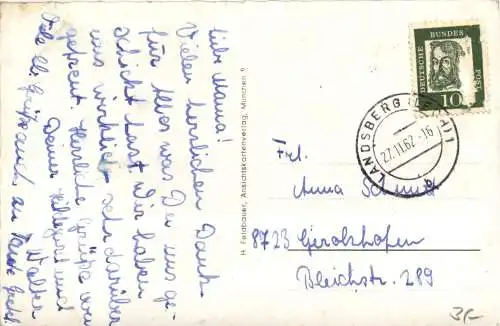 liebe Mama!
Vielen herzlichen Dank
für Alles was Du uns ge-
schickt hast. Wir haben
uns wirklich sehr darüber
gefreut. Herzliche Grüße von
Deiner Hildegard und
Walter
Viele lb. Grüße auch an Tante Gretel
H. Feldbauer, Ansichtskartenverlag, München 9
DEUTSCHE BUNDES POST
10
LANDSBERG (LECH) 1
27.11.62-16
Frl.
Anna Schmidt
8723 Gerolzhofen
Bleichstr. 289
3,-